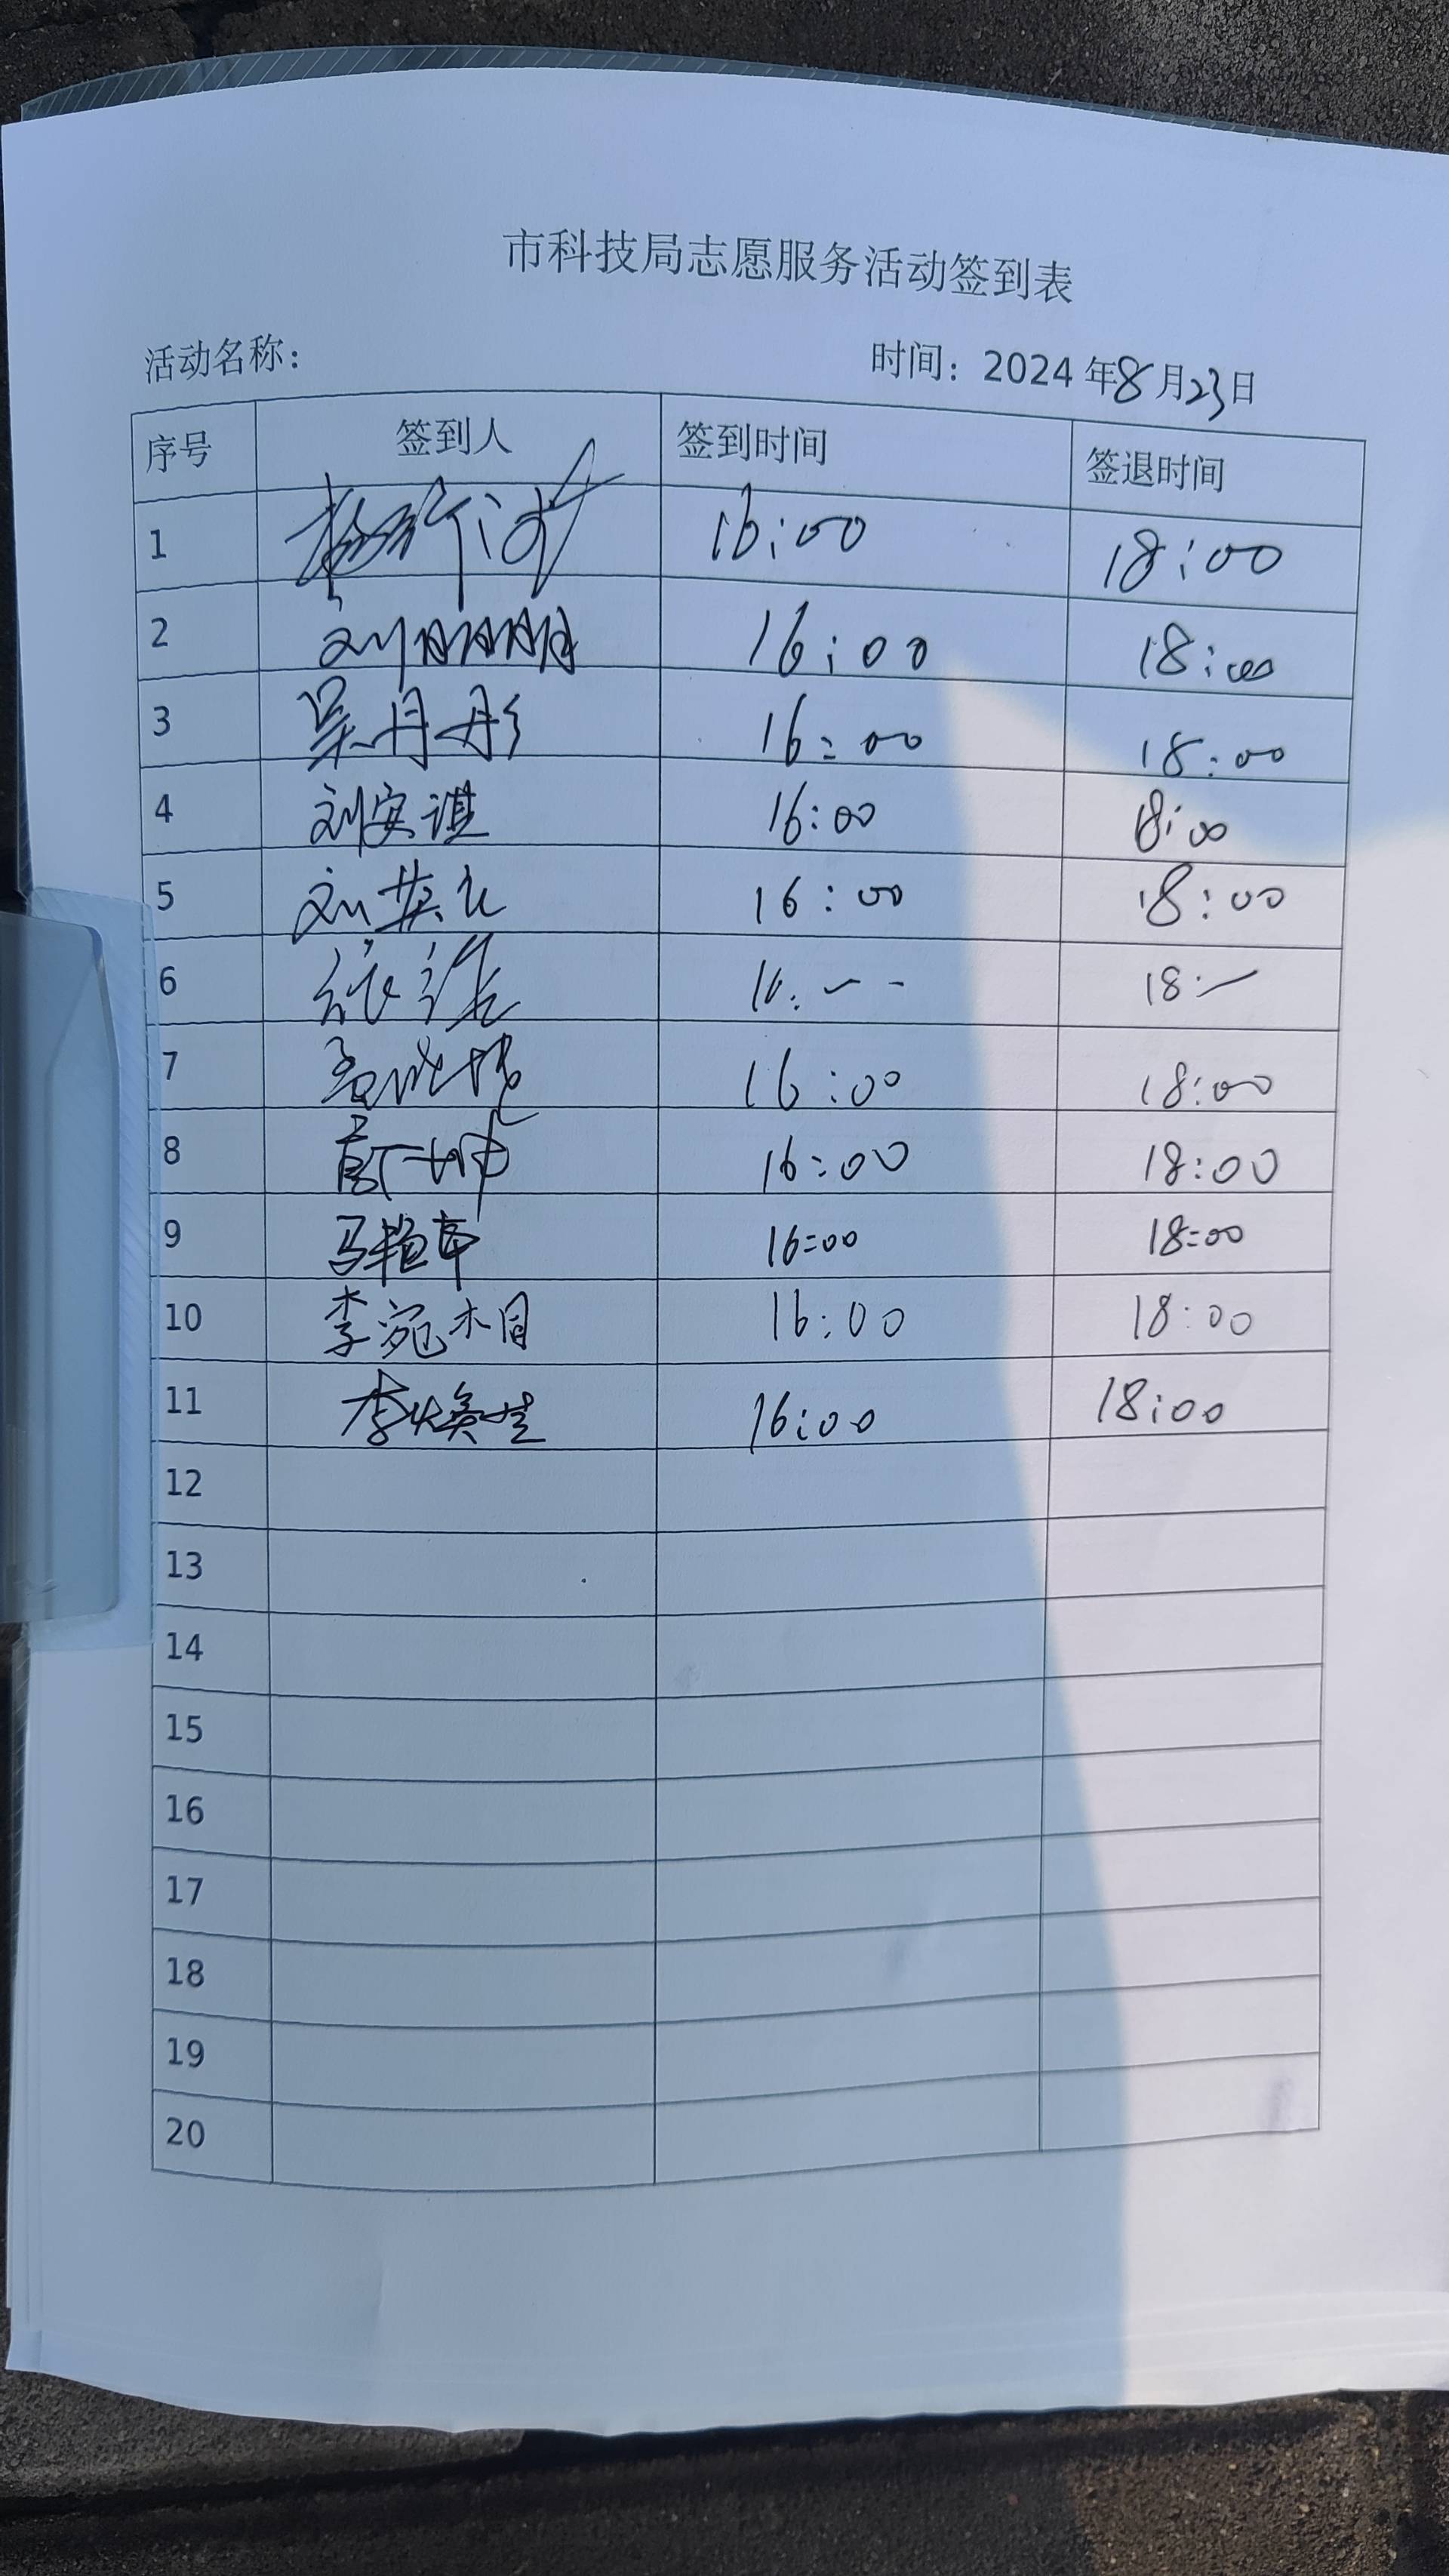 市科技局志愿服务活动签到表
活动名称： 时间：2024年8月23日
序号 签到人 签到时间 签退时间
1 16:00 18:00
2 刘明明 16:00 18:00
3 吴丹彤 16:00 18:00
4 刘安琪 16:00 18:00
5 刘英 16:00 18:00
6 16: 18:
7 孟 16:00 18:00
8 16:00 18:00
9 马艳华 16:00 18:00
10 李宛木目 16:00 18:00
11 李焕 16:00 18:00
12
13
14
15
16
17
18
19
20